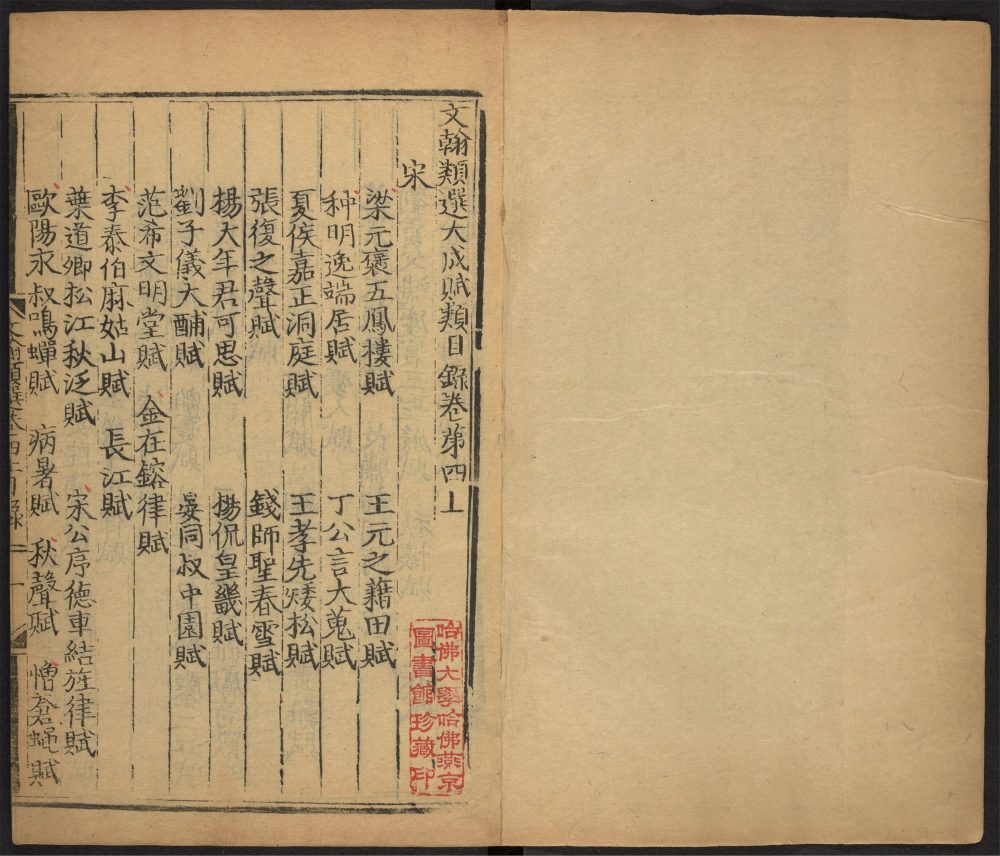 文翰類選大成賦類目錄卷第四上
宋
梁元褒五鳳樓賦 王元之籍田賦
种明逸端居賦 丁公言大蒐賦
夏侯嘉正洞庭賦 王孝先矮松賦
張復之聲賦 錢師聖春雪賦
楊大年君可思賦 楊侃皇畿賦
劉子儀大酺賦 晏同叔中園賦
范希文明堂賦 金在鎔律賦
李泰伯麻姑山賦 長江賦
葉道卿松江秋泛賦 宋公序德車結旌律賦
歐陽永叔鳴蟬賦 病暑賦 秋聲賦 憎蒼蠅賦
哈佛大學哈佛燕京
圖書館珍藏印